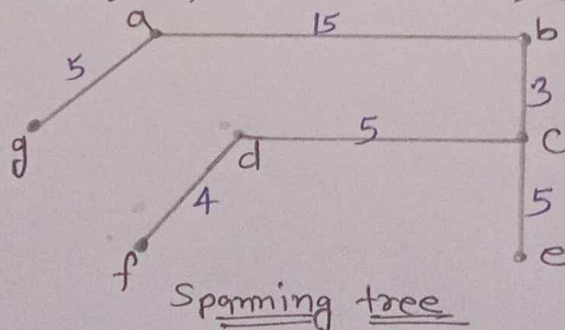 a 15 b
5 3
g d 5 c
4 5
f e
Spanning tree